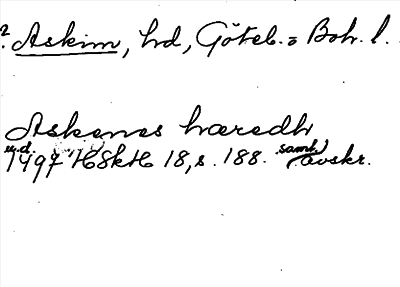 2. Askim, hd, Göteb. = Boh. l.
Askenes hæredh
u.d. 1497 HSkH 18, s. 188. samt. avskr.